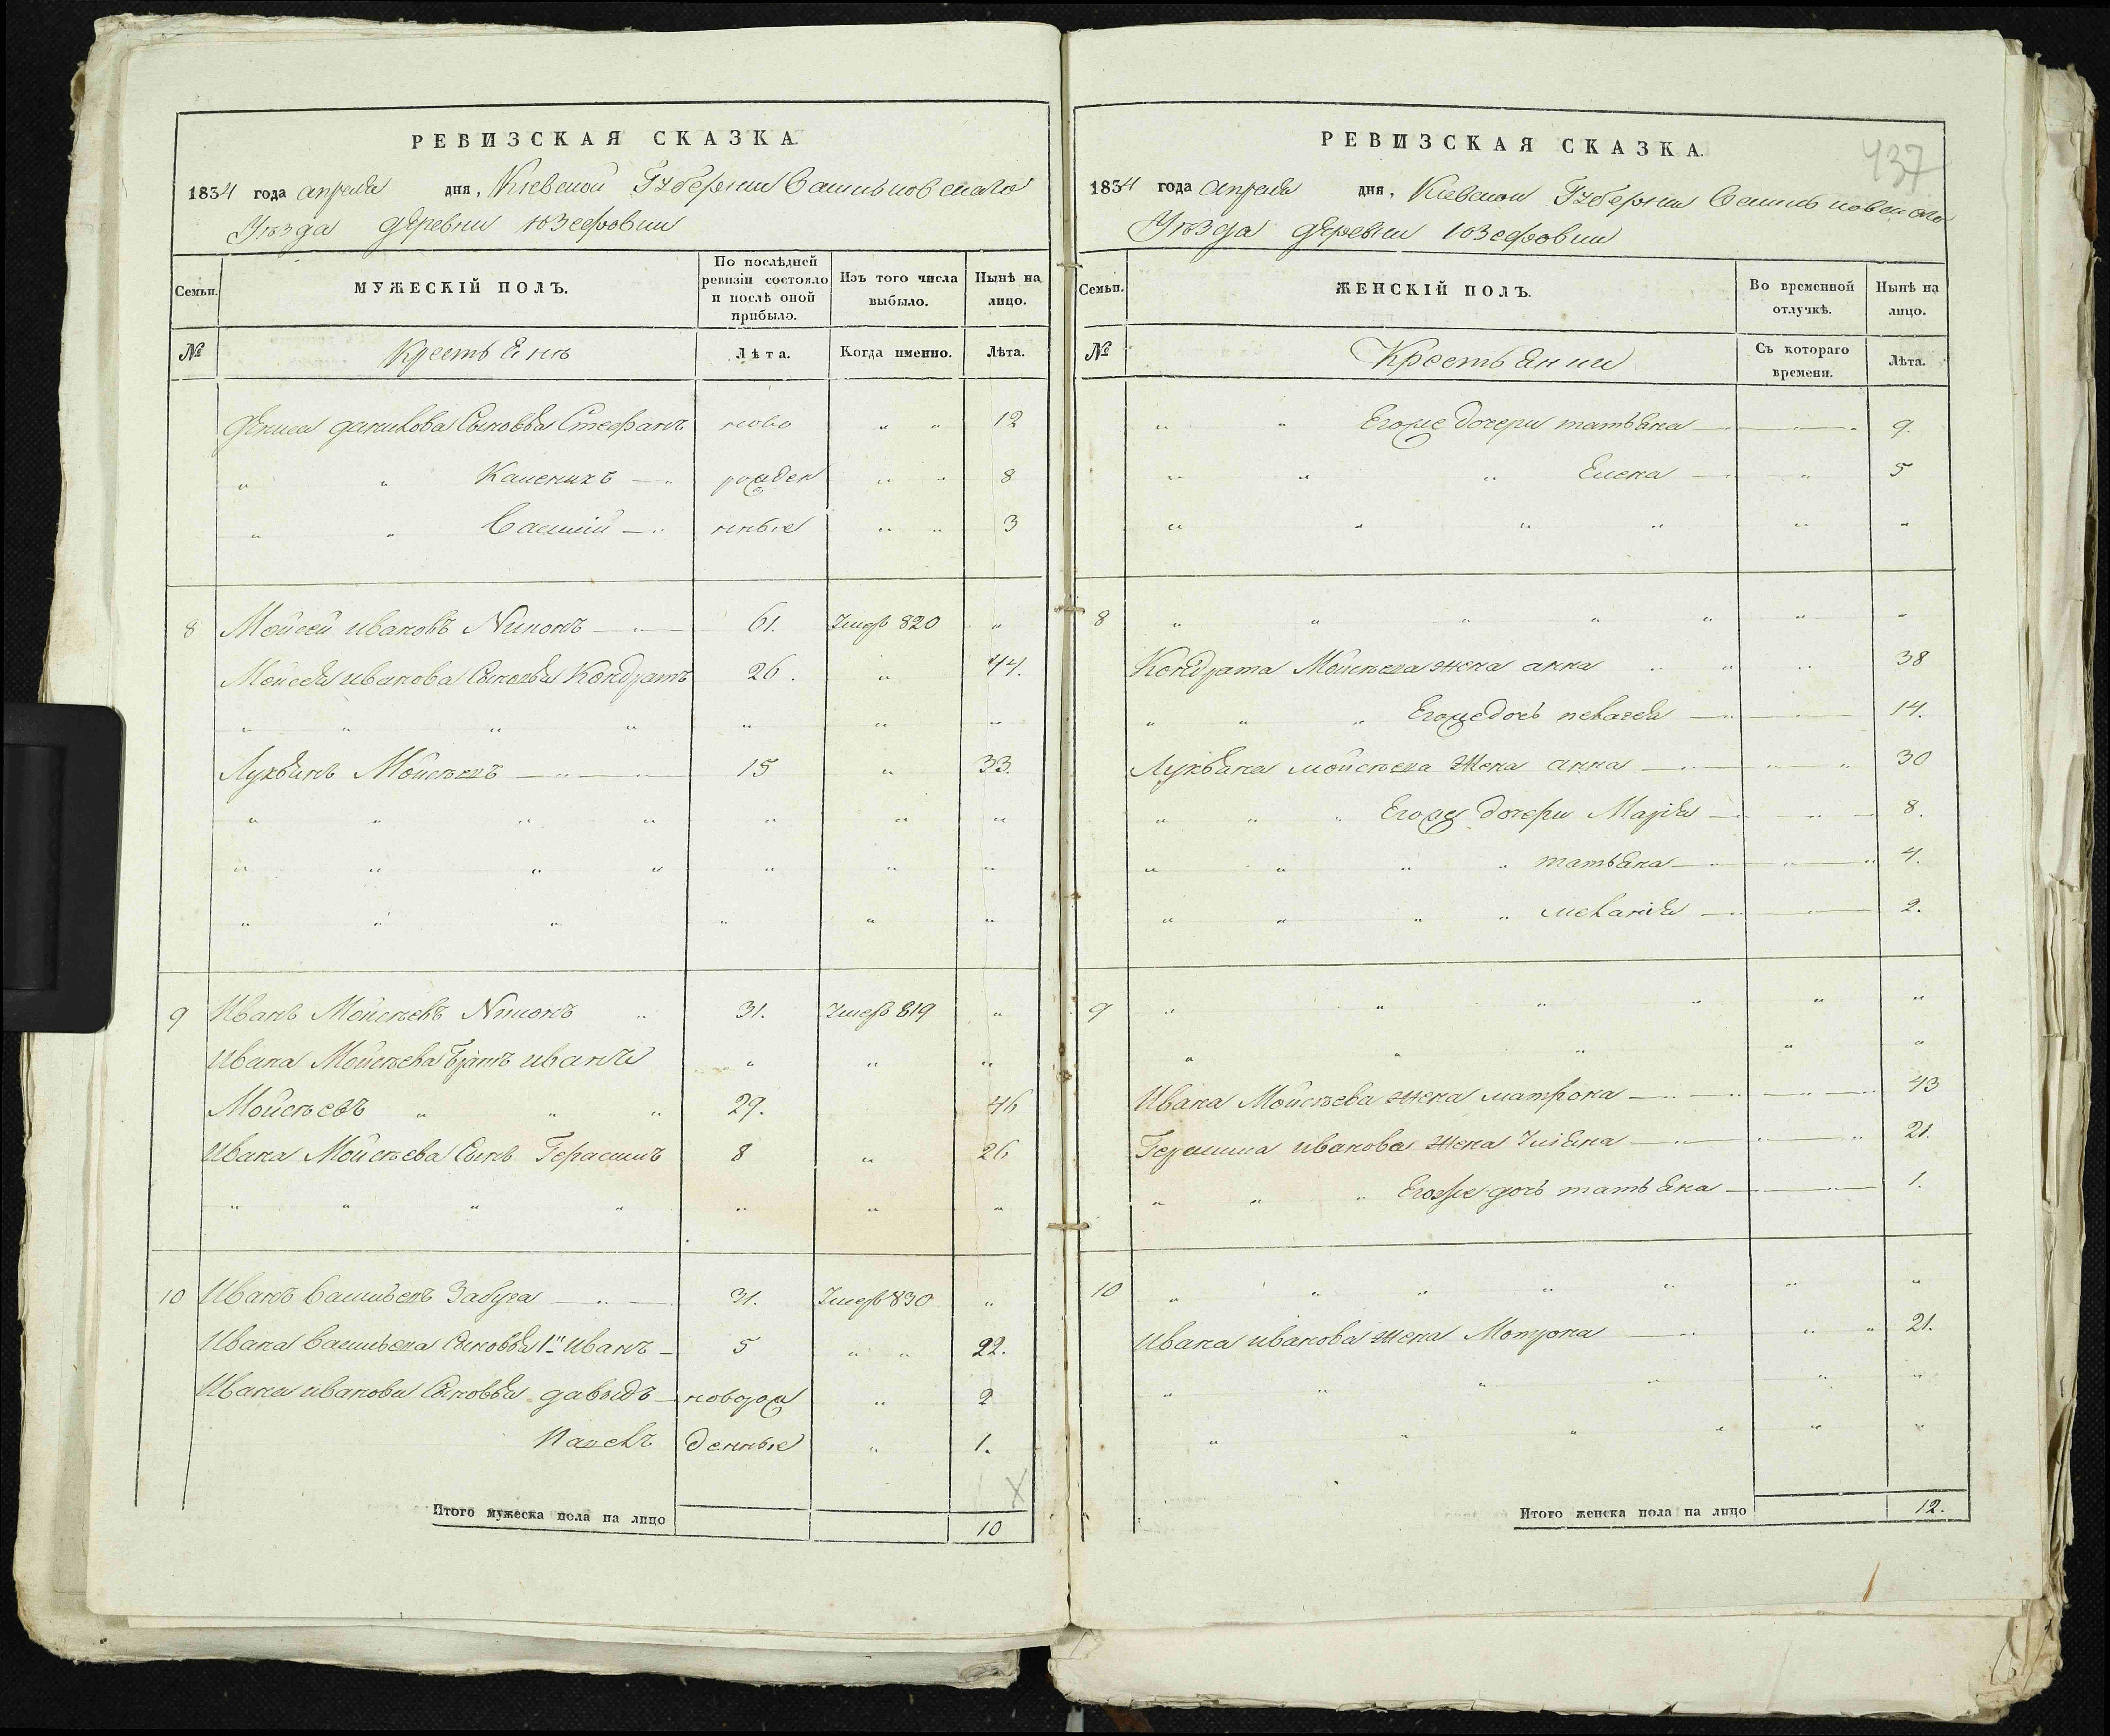 РЕВИЗСКАЯ СКАЗКА.
1834 года апреля дня, Кіевской Губерніи Васильковскаго
Уѣзда деревни Юзефовки
Семьи.
МУЖЕСКІЙ ПОЛЪ.
По послѣдней ревизіи состояло и послѣ оной прибыло.
Изъ того числа выбыло.
Нынѣ на лицо.
№ Крестьянъ Лѣта. Когда именно. Лѣта.
Дениса данилова Сыновья Стефанъ ново " " 12
" " рожден " " 8
" " Василій нные " " 3
8 Мойсей ивановъ 61. Умеръ 820 "
Мойсея иванова Сыновья Кондратъ 26. " 44.
" " " " " " "
Лукьянъ Мойсѣевъ 15 " 33.
" " " " " " "
" " " " " " "
" " " " " "
9 Иванъ Мойсѣевъ 31. Умеръ 819 "
Ивана Мойсѣева Братъ иванъ " " "
Мойсѣевъ " " " 29. 46
Ивана Мойсѣева Сынъ Герасимъ 8 " 26
" " " " " " "
10 Иванъ Васильевъ 31. Умеръ 830 "
Ивана Васильева Сыновья 1й Иванъ 5 " " 22.
Ивана иванова Сыновья давыдъ новорож " 2
Павелъ денные " 1.
Итого мужеска пола на лицо 10
437
РЕВИЗСКАЯ СКАЗКА.
1834 года Апреля дня, Кіевской Губерніи Васильковскаго
Уѣзда деревни Юзефовки
Семьи.
ЖЕНСКІЙ ПОЛЪ.
Во временной отлучкѣ.
Нынѣ на лицо.
№ Крестьянки Съ котораго времени. Лѣта.
" " Егоже дочери татьяна " 9.
" " " Елена " 5
" " " " " "
8 " " " " " " "
Кондрата Мойсѣева жена анна " " " 38
" " " Егоже дочь пелагея " 14.
Лукьяна мойсѣева жена анна " " 30
" " " Егоже дочери Марія " 8.
" " " " татьяна " 4.
" " " " меланія " 2.
9 " " " " " "
" " " " "
Ивана Мойсѣева жена матрона " " 43
Герасима иванова жена Уліяна " " 21.
" " " Егоже дочь татьяна " 1.
10 " " " " " " "
Ивана иванова жена Мотрона " " 21.
" " " " " "
" " " " " "
Итого женска пола на лицо 12.